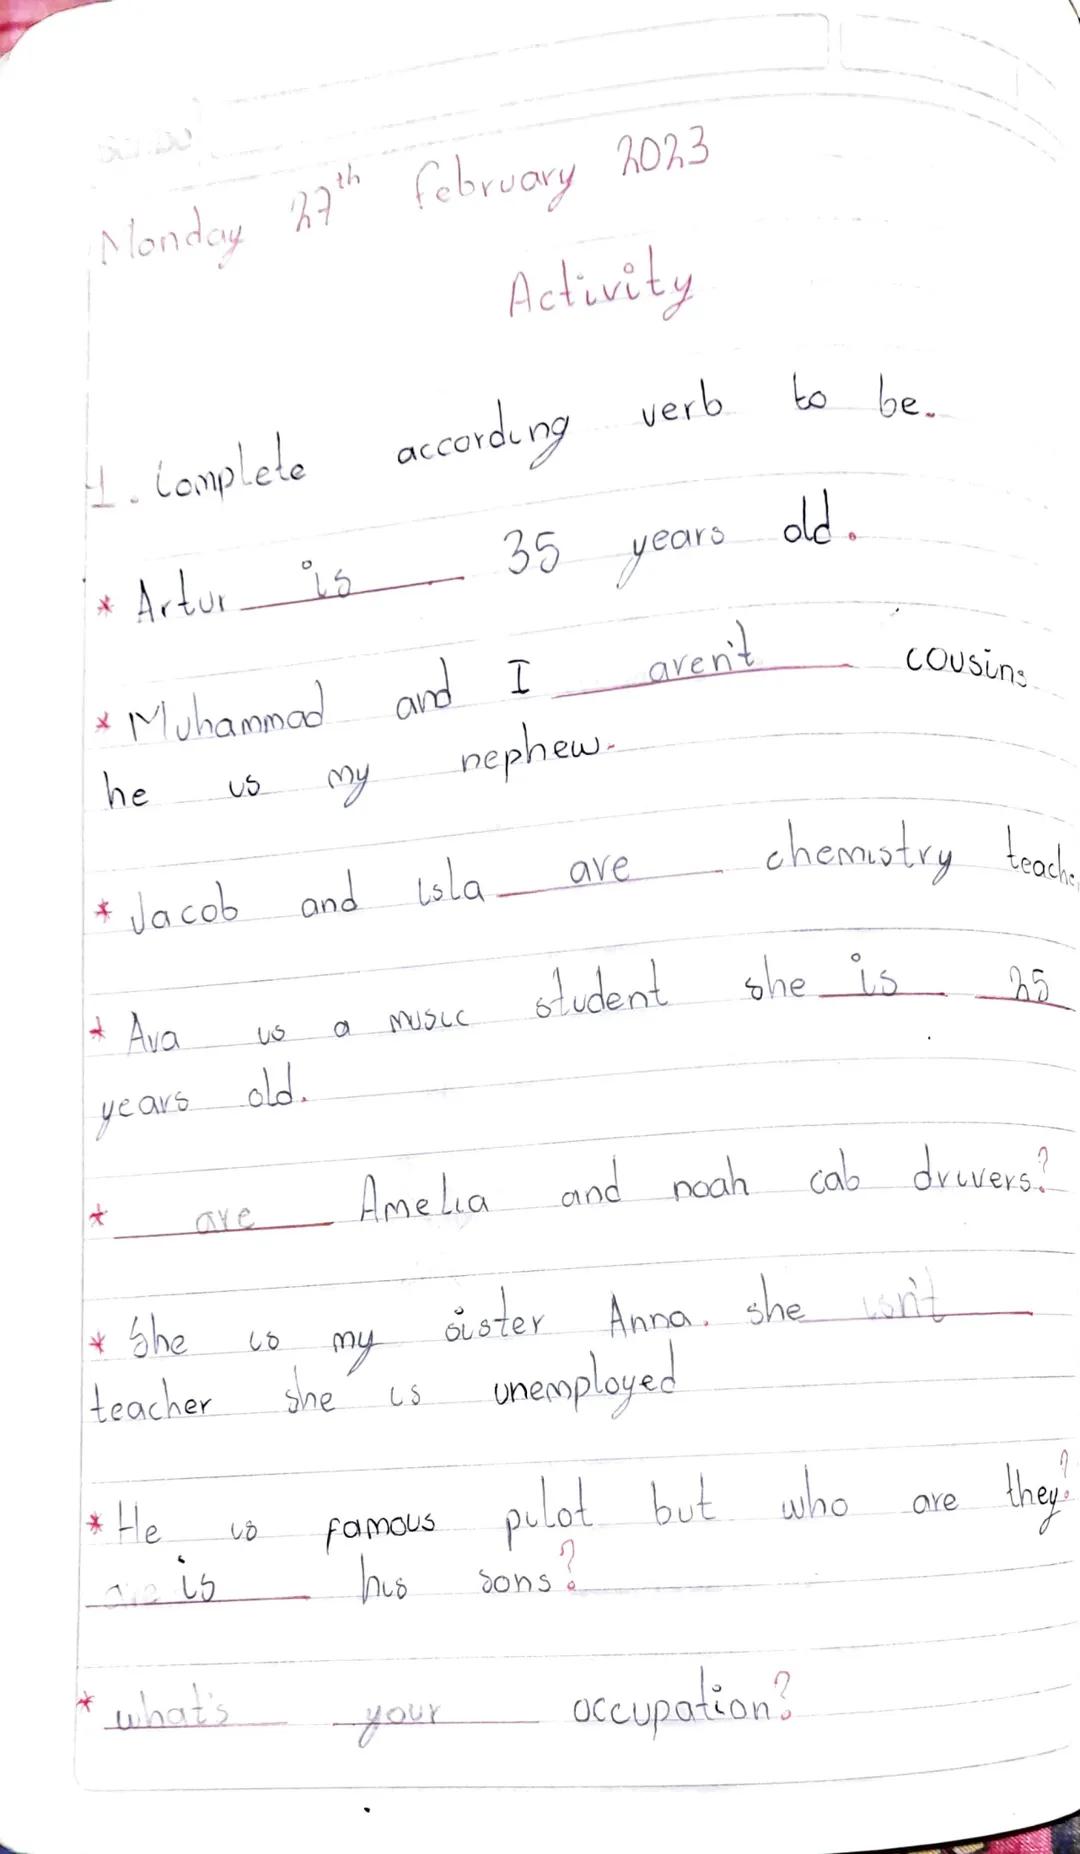 Monday 27th february 2023
Activity
1. Complete according verb to be.
* Artur is 35 years old.
* Muhammad and I aren't cousins
he is my nephew.
* Jacob and isla are chemistry teacher
* Ava is a music student she is 25
years old.
* are Amelia and noah cab drivers?
* She is my sister Anna. she isn't
teacher she is unemployed
* He is famous pilot but who are they?
is his sons?
* what's your occupation?